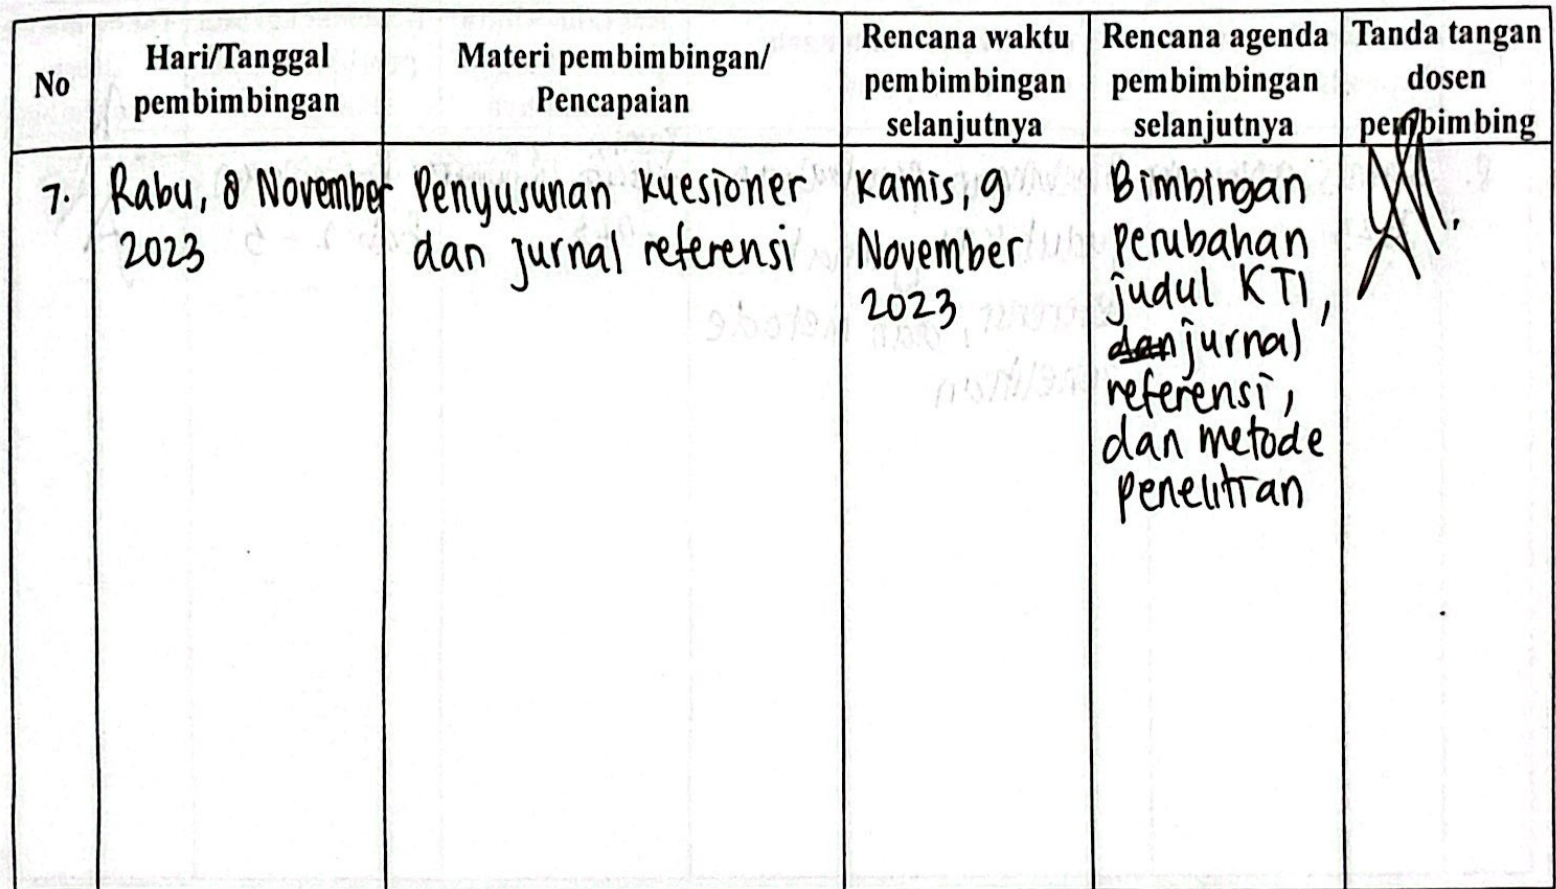 No
Hari/Tanggal
pembimbingan
Materi pembimbingan/
Pencapaian
Rencana waktu
pembimbingan
selanjutnya
Rencana agenda
pembimbingan
selanjutnya
Tanda tangan
dosen
pembimbing
7.
Rabu, 8 November
2023
Penyusunan kuesioner
dan jurnal referensi
Kamis, 9
November
2023
Bimbingan
perubahan
judul KTI,
dan jurnal
referensi,
dan metode
penelitian